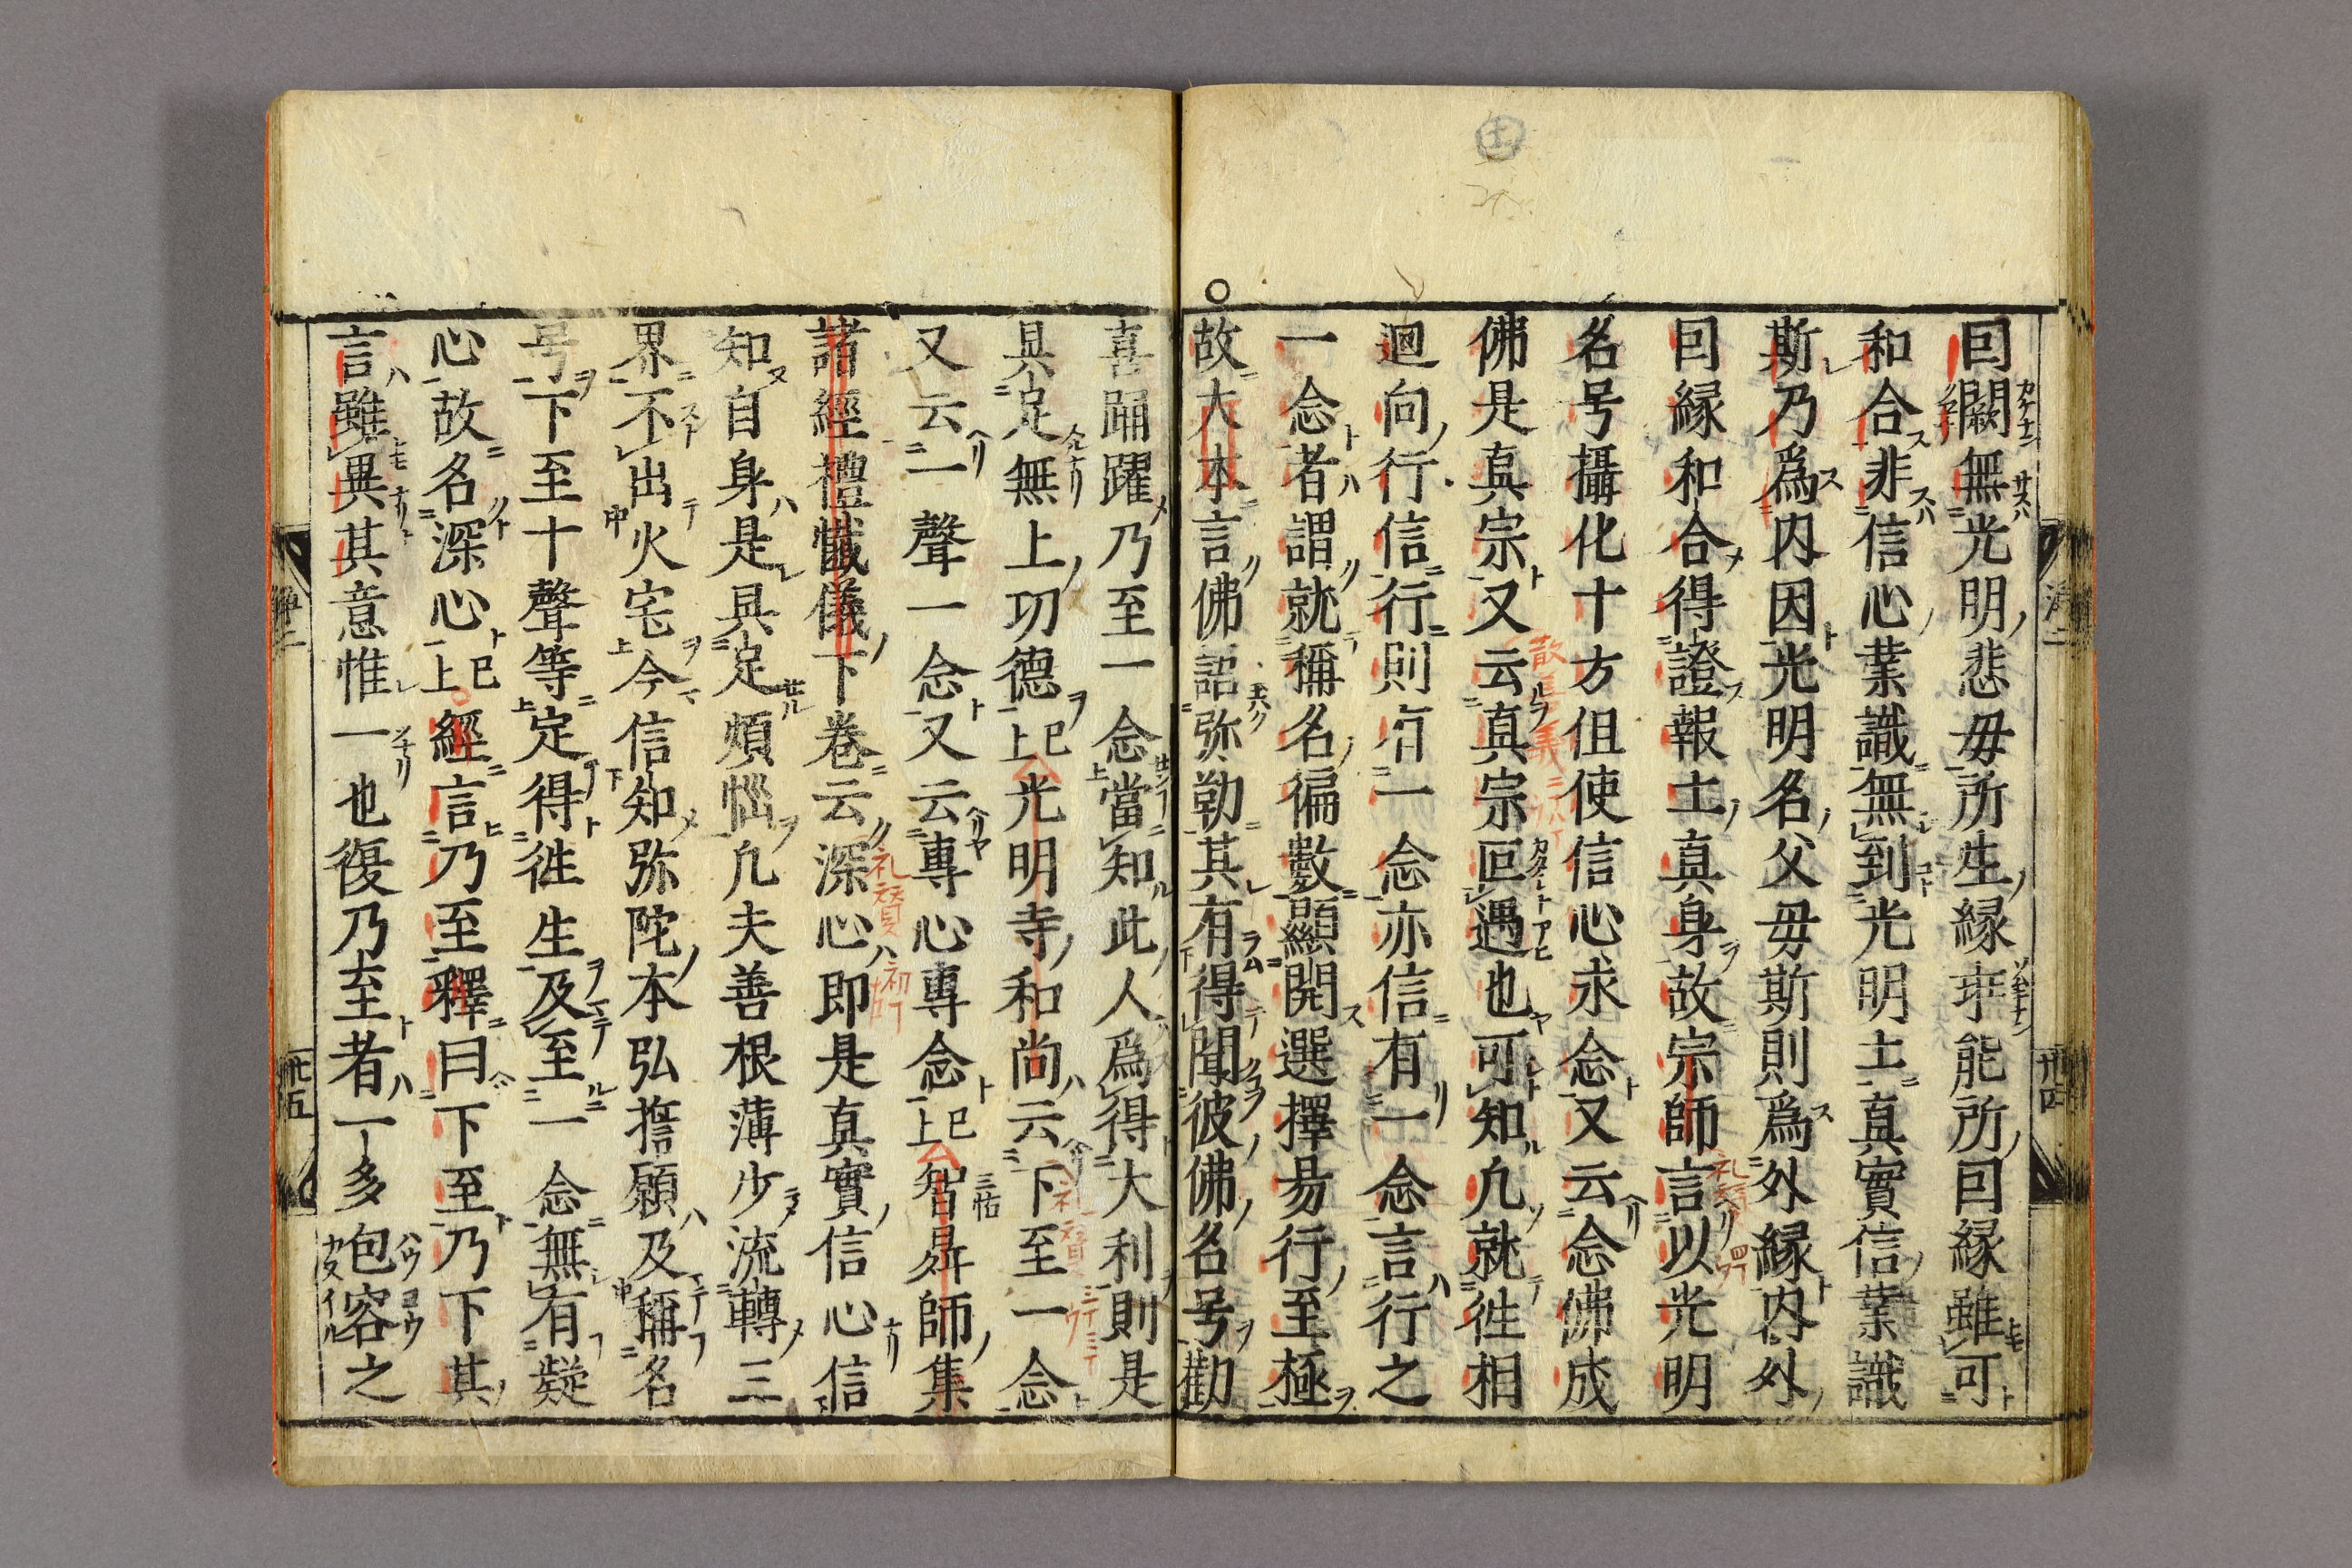 囙闕無光明悲毋所生縁乖能所囙縁雖可
和合非信心業識無到光明土真實信業識
斯乃爲内因光明名父毋斯則爲外縁内外
囙縁和合得證報土真身故宗師言以光明
名号攝化十方但使信心求念又云念佛成
佛是真宗又云真宗叵遇也可知凢就徃相
迴向行信行則有一念亦信有一念言行之
一念者謂就稱名徧數顯開選擇易行至極
故大本言佛詔弥勒其有得聞彼佛名号歡
喜踊躍乃至一念當知此人爲得大利則是
具足無上功德已上光明寺和尚云下至一念
又云一聲一念又云專心專念已上智昇師集
諸經禮懺儀下卷云深心即是真實信心信
知自身是具足煩惱凢夫善根薄少流轉三
界不出火宅今信知弥陀本弘誓願及稱名
号下至十聲等定得徃生及至一念無有疑
心故名深心已上經言乃至釋曰下至乃下其
言雖異其意惟一也復乃至者一多包容之